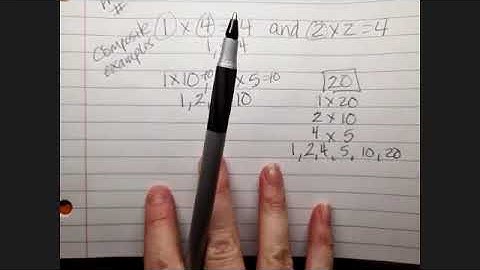 #
Composite examples
1 x 4 = 4 and 2 x 2 = 4
1, 4
1 x 10 = 10, x 5 = 10
1, 2, 10
20
1 x 20
2 x 10
4 x 5
1, 2, 4, 5, 10, 20